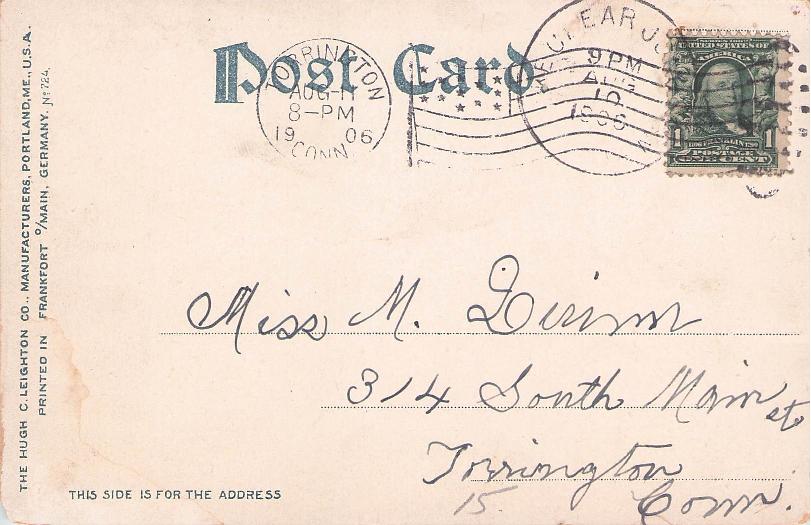 Post Card
TORRINGTON
AUG 11
8-PM
19 06
CONN.
9 PM
AUG
10
1906
UNITED STATES OF
AMERICA
1 1
POSTAGE
ONE CENT
Miss M.
314 South Main st
Torrington
15. Conn.
THIS SIDE IS FOR THE ADDRESS
THE HUGH C. LEIGHTON CO., MANUFACTURERS, PORTLAND, ME., U.S.A.
PRINTED IN FRANKFORT o/MAIN, GERMANY. No 724.